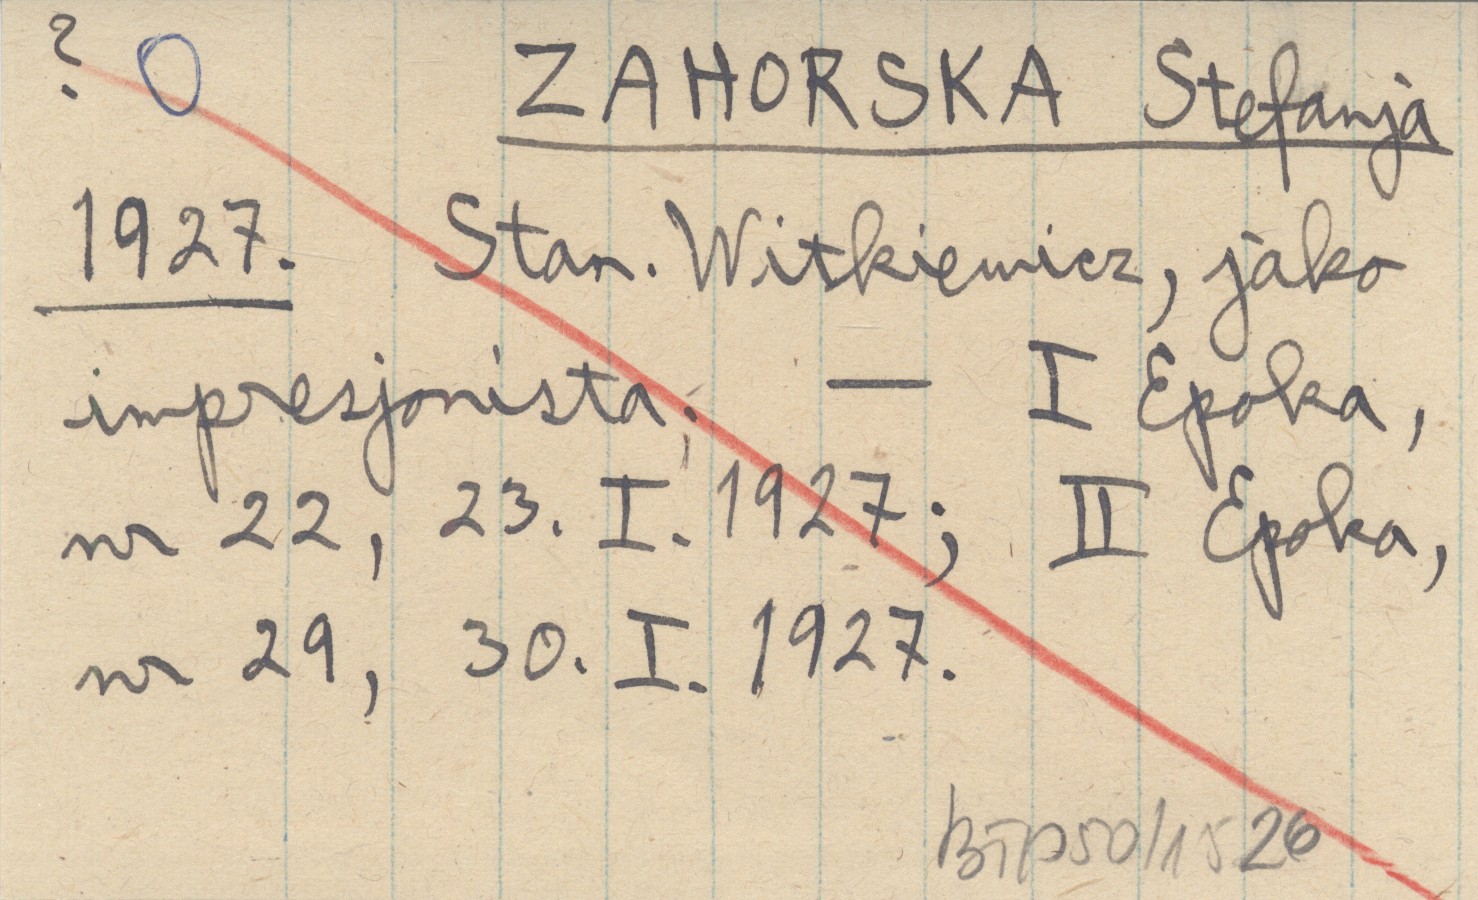 ? O ZAHORSKA Stefanja
1927. Stan. Witkiewicz, jako
impresjonista. — I Epoka,
nr 22, 23. I. 1927; II Epoka,
nr 29, 30. I. 1927.
BTP50/1526